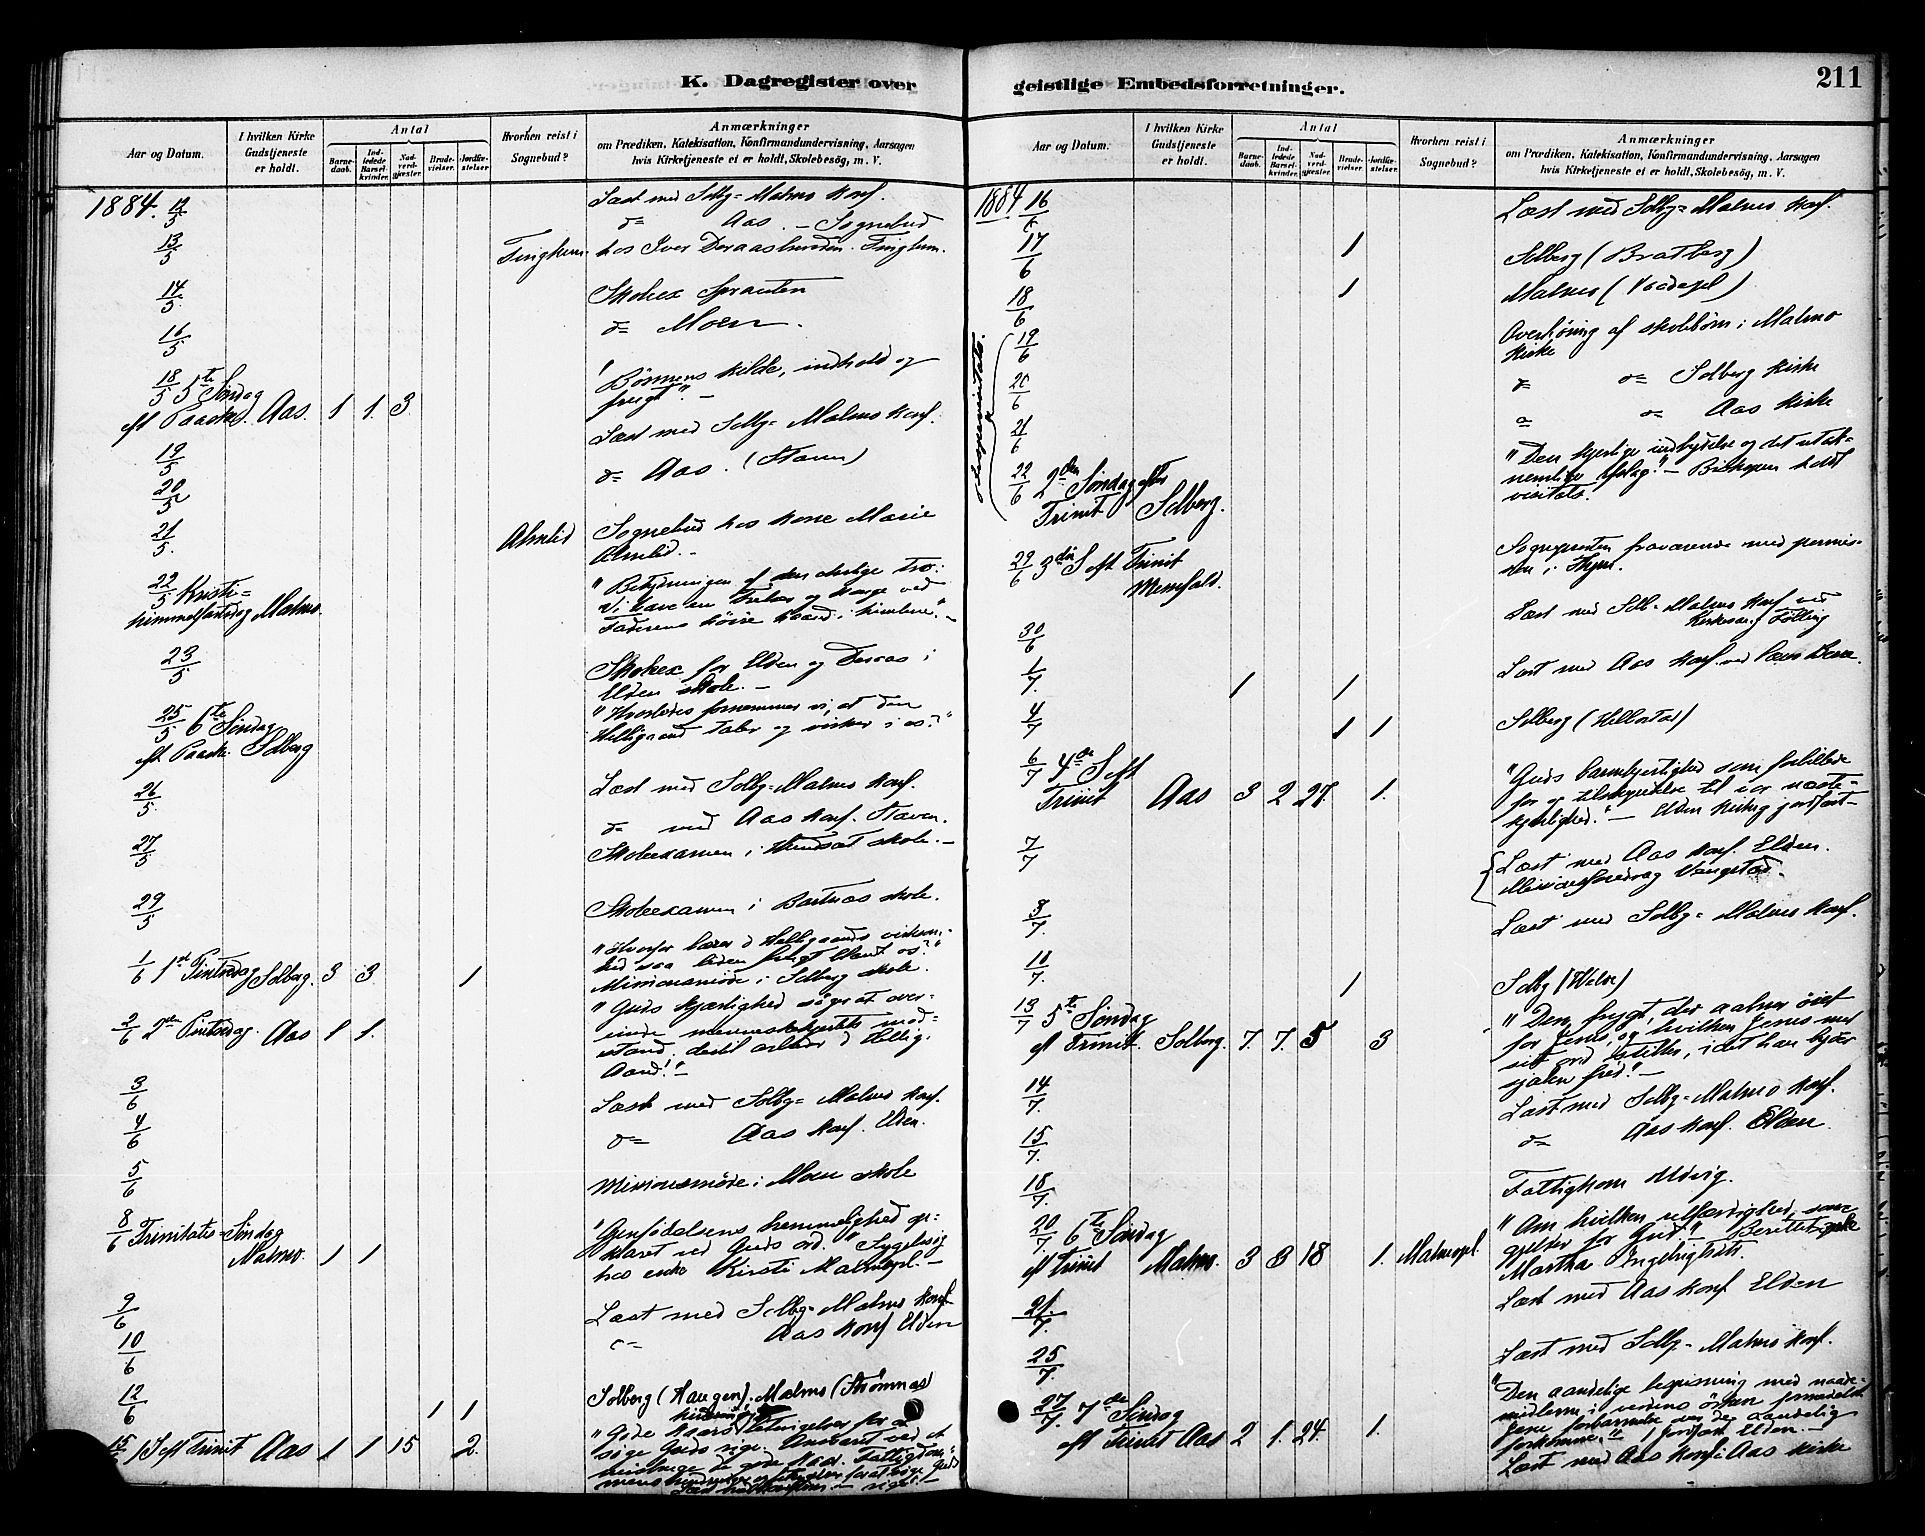 K. Dagregister over
Aar og Datum.
I hvilken Kirke Gudstjeneste er holdt.
Antal
Barne-daab.
Ind-ledede Barsel-kvinder.
Nad-verd-gjester.
Brude-vielser.
Jordfæ-stelser.
Hvorhen reist i Sognebud?
Anmærkninger
om Prædiken, Katekisation, Konfirmandundervisning, Aarsagen
hvis Kirketjeneste ei er holdt, Skolebesög, m. V.
1884. 12/5 Læst med Solbg-Malmo Konf.
13/5 d= Aas - Sognebud
hos Iver
14/5 Skoleex
16/5 d= Moen.
18/5 5te Søndag
eft Paaske. Aas. 1 1. 3. "Bønnens kilde, indhold og
frugt." -
19/5 Læst med Solbg-Malmo Konf.
20/5 d= Aas. (Staven)
21/5 Almlid Sognebud hos Kone Marie
Almlid. -
22/5 Kristi-
himmelfartsdag Malmo. "Betydningen af den tro:
Vi have en og Konge ved
Faderens høire haand i himlene." -
23/5 Skoleex for Elden og i
Elden skole. -
25/5 6te Søndag
eft Paaske. Solberg "Hvorledes fornemmer vi, at den
Helligaand taler og virker i os?"
26/5 Læst med Solbg-Malmo Konf.
d= med Aas Konf. Staven.
27/5 Skoleexamen i skole. -
29/5 Skoleexamen i Bartnæs skole.
1/6 1ste Pintsedag Solberg. 3 3. 1 "Hvorfor bærer d Helligaands virksom-
hed saa liden frugt blandt os?"
Missionsmøde i Solberg skole.
2/6 2den Pintsedag. Aas 1 1. "Guds kjærlighed søger at over-
vinde menneskehjertets mod-
stand; dertil arbeider d Hellig
Aand." -
3/6 Læst med Solbg-Malmo Konf.
4/6 d= Aas Konf. Elden.
5/6 Missionsmøde i Moen skole
8/6 Trinitatis-Søndag
Malmo. 1 1 "Gjenfødelsens hemmelighed op-
klaret ved Guds ord." Sygebesøg
hos enke Kirsti Malmopl. -
9/6 Læst med Solbg-Malmo Konf
10/6 d= Aas Konf Elden
12/6 1 1 Solberg (Haugen). Malmo (Strømnæs)
15/6 1 S eft Trinit Aas 1 1 15 2.
søge Guds rige. Ansvaret ved at
geistlige Embedsforretninger.
211
Aar og Datum.
I hvilken Kirke Gudstjeneste er holdt.
Antal
Barne-daab.
Ind-ledede Barsel-kvinder.
Nad-verd-gjester.
Brude-vielser.
Jordfæ-stelser.
Hvorhen reist i Sognebud?
Anmærkninger
om Prædiken, Katekisation, Konfirmandundervisning, Aarsagen
hvis Kirketjeneste ei er holdt, Skolebesög, m. V.
1884 16/6 Læst med Solbg-Malmo Konf.
17/6 1 Solberg (Bratberg)
18/6 1 Malmo
Bispevisitats.
19/6 Overhøring af skolebørn i Malmo
Kirke
20/6 d= d= Solberg Kirke
21/6 d= d= Aas Kirke
22/6 2den Søndag efter
Trinit Solberg. "Den kjærlige indbydelse og det utak-
nemlige afslag." - Biskopen holdt
visitats.
29/6 3die S eft Trinit
Messefald. Sognepresten fraværende med permis-
sion i
30/6 Læst med Solb-Malmo Konf ved
Kirkesanger Følling
1/7. 1 1 Læst med Aas Konf. ved
4/7 1 1 Solberg (Hellestad)
6/7 4de S eft
Trinit Aas 3 2 27. 1. "Guds barmhjertighed som forbillede
for og tilskyndelse til vor næste-
kjærlighed." - Elden Kirkeg jordfæst-
7/7 Læst med Aas Konf. Elden.
Missionsforedrag Vengstad.
8/7. Læst med Solbg-Malmo Konf.
10/7. 1 Solbg
13/7 5te Søndag
eft Trinit. Solberg. 7. 7. 5 3 "Den frygt, der aabner øiet
for Jesus, og hvilken Jesus med
sit ord stiller, idet han byder
sjælen fred." -
14/7. Læst med Solbg-Malmo Konf.
15/7. d= Aas Konf. Elden.
18/7. Fattigkom Utvig.
20/7 6te Søndag
eft Trinit Malmo. 3 3 18 1. Malmopl. "Om hvilken retfærdighed, som
gjelder for Gud." Berettet
Martha Ingebrigtsdt.
21/7. Læst med Aas Konf Elden
25/7. Læst med Solbg-Malmo Konf.
27/7. 7de Søndag
eft Trinit Aas 2 1. 24. 1. "Den aandelige bespisning med naade-
midlerne i verdens ørken formedelst
Jesu forbarmelse over de aandelig
forkomne." 1 jordfæst Elden. -
Læst med Aas Konf i Aas Kirke